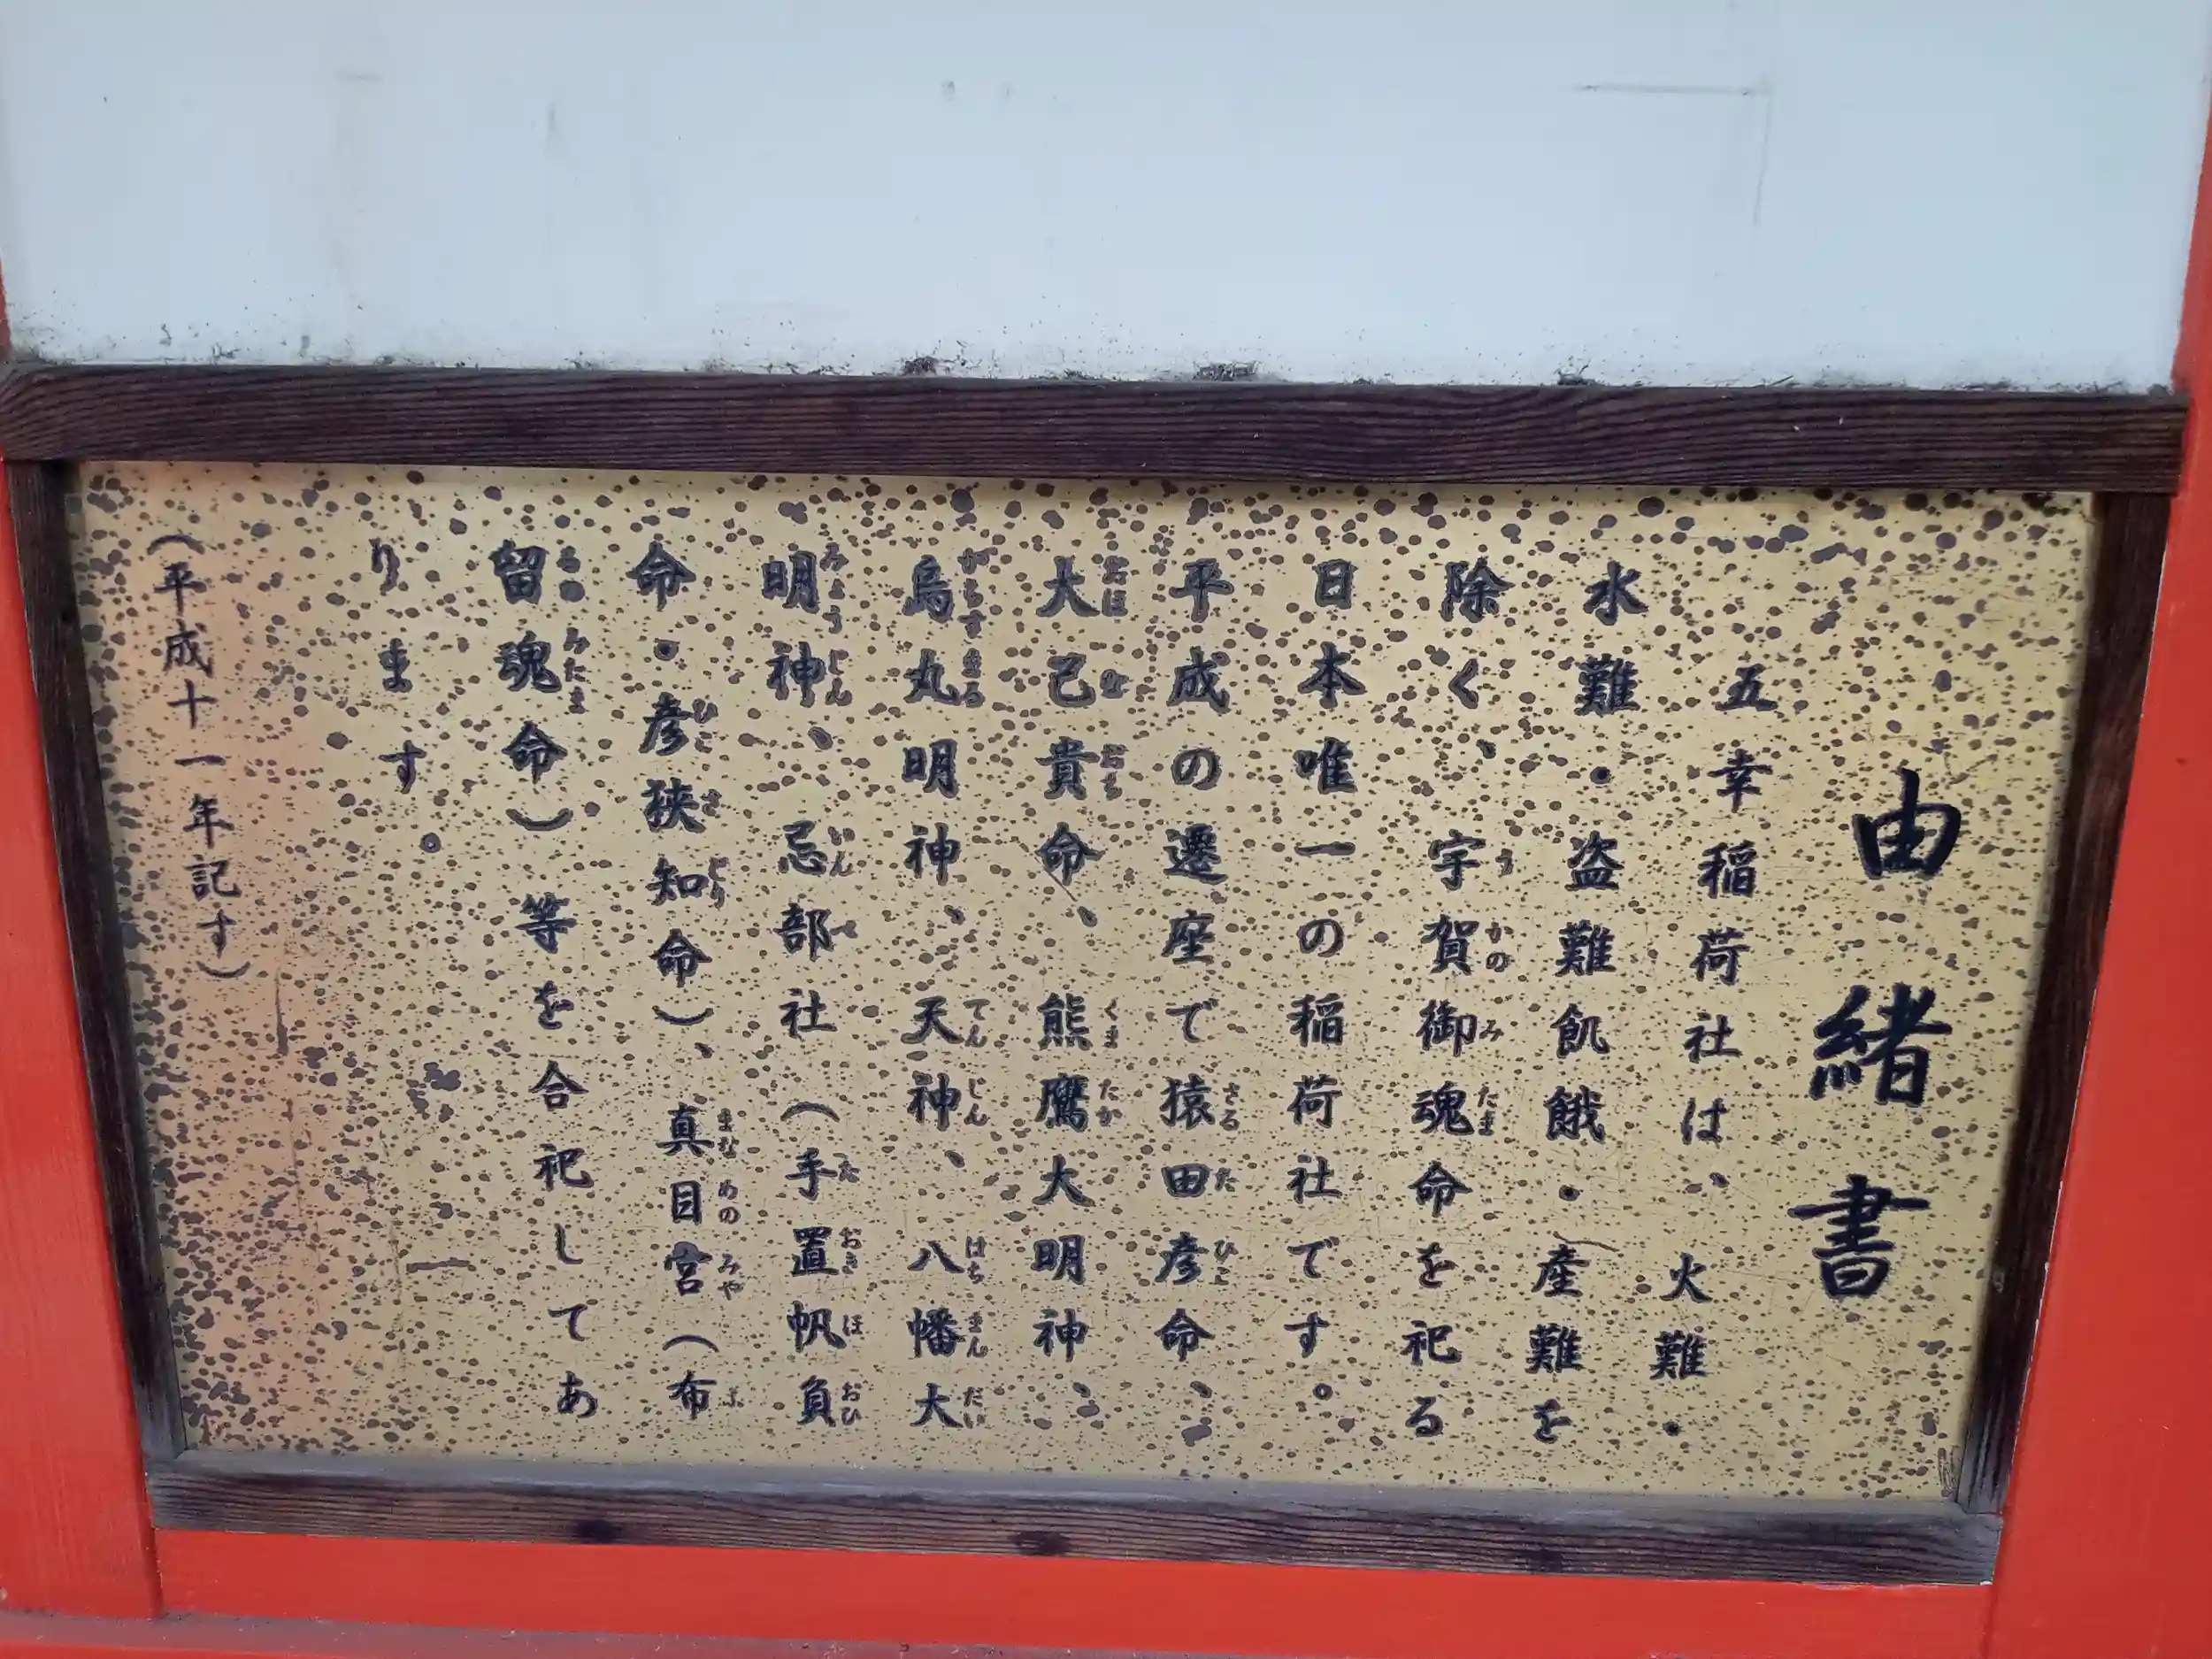 由緒書
五幸稲荷社は、火難・
水難・盗難飢餓・産難を
除く、宇賀御魂命を祀る
日本唯一の稲荷社です。
平成の遷座で猿田彦命、
大己貴命、熊鷹大明神、
烏丸明神、天神、八幡大
明神、忌部社（手置帆負
命・彦狭知命）、真目宮（布
留魂命）等を合祀してあ
ります。
（平成十一年記す）